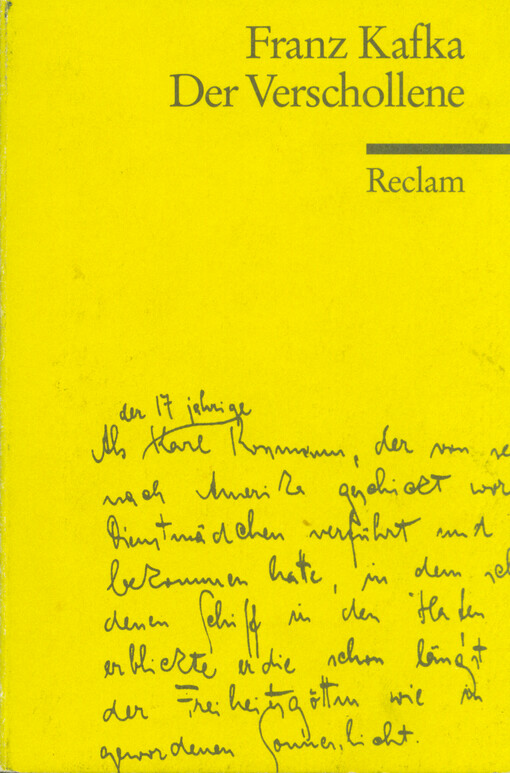 Franz Kafka
Der Verschollene
Reclam
der 17 jährige
Als Karl Rossmann, der von se
nach Amerika geschickt wor
Dienstmädchen verführt und
bekommen hatte, in dem
denen Schiff in den Hafen
erblickte er die schon längst
der Freiheitsgöttin wie in
gewordenen Sonnenlicht.